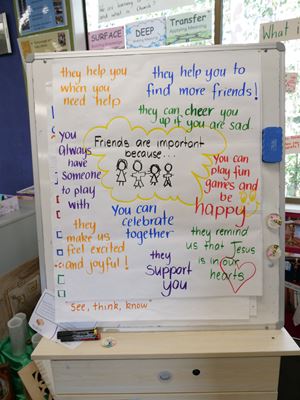 SURFACE
DEEP
Transfer
they help you
when you
need help
they help you to
find more friends!
they can cheer you
up if you are sad
you
always
have
someone
to play
with
Friends are important
because...
you can
play fun
games and
be
happy
You can
celebrate
together
they
make us
feel excited
and joyful!
they remind
us that Jesus
is in our
hearts
they
support
you
"See, think, know"
What i